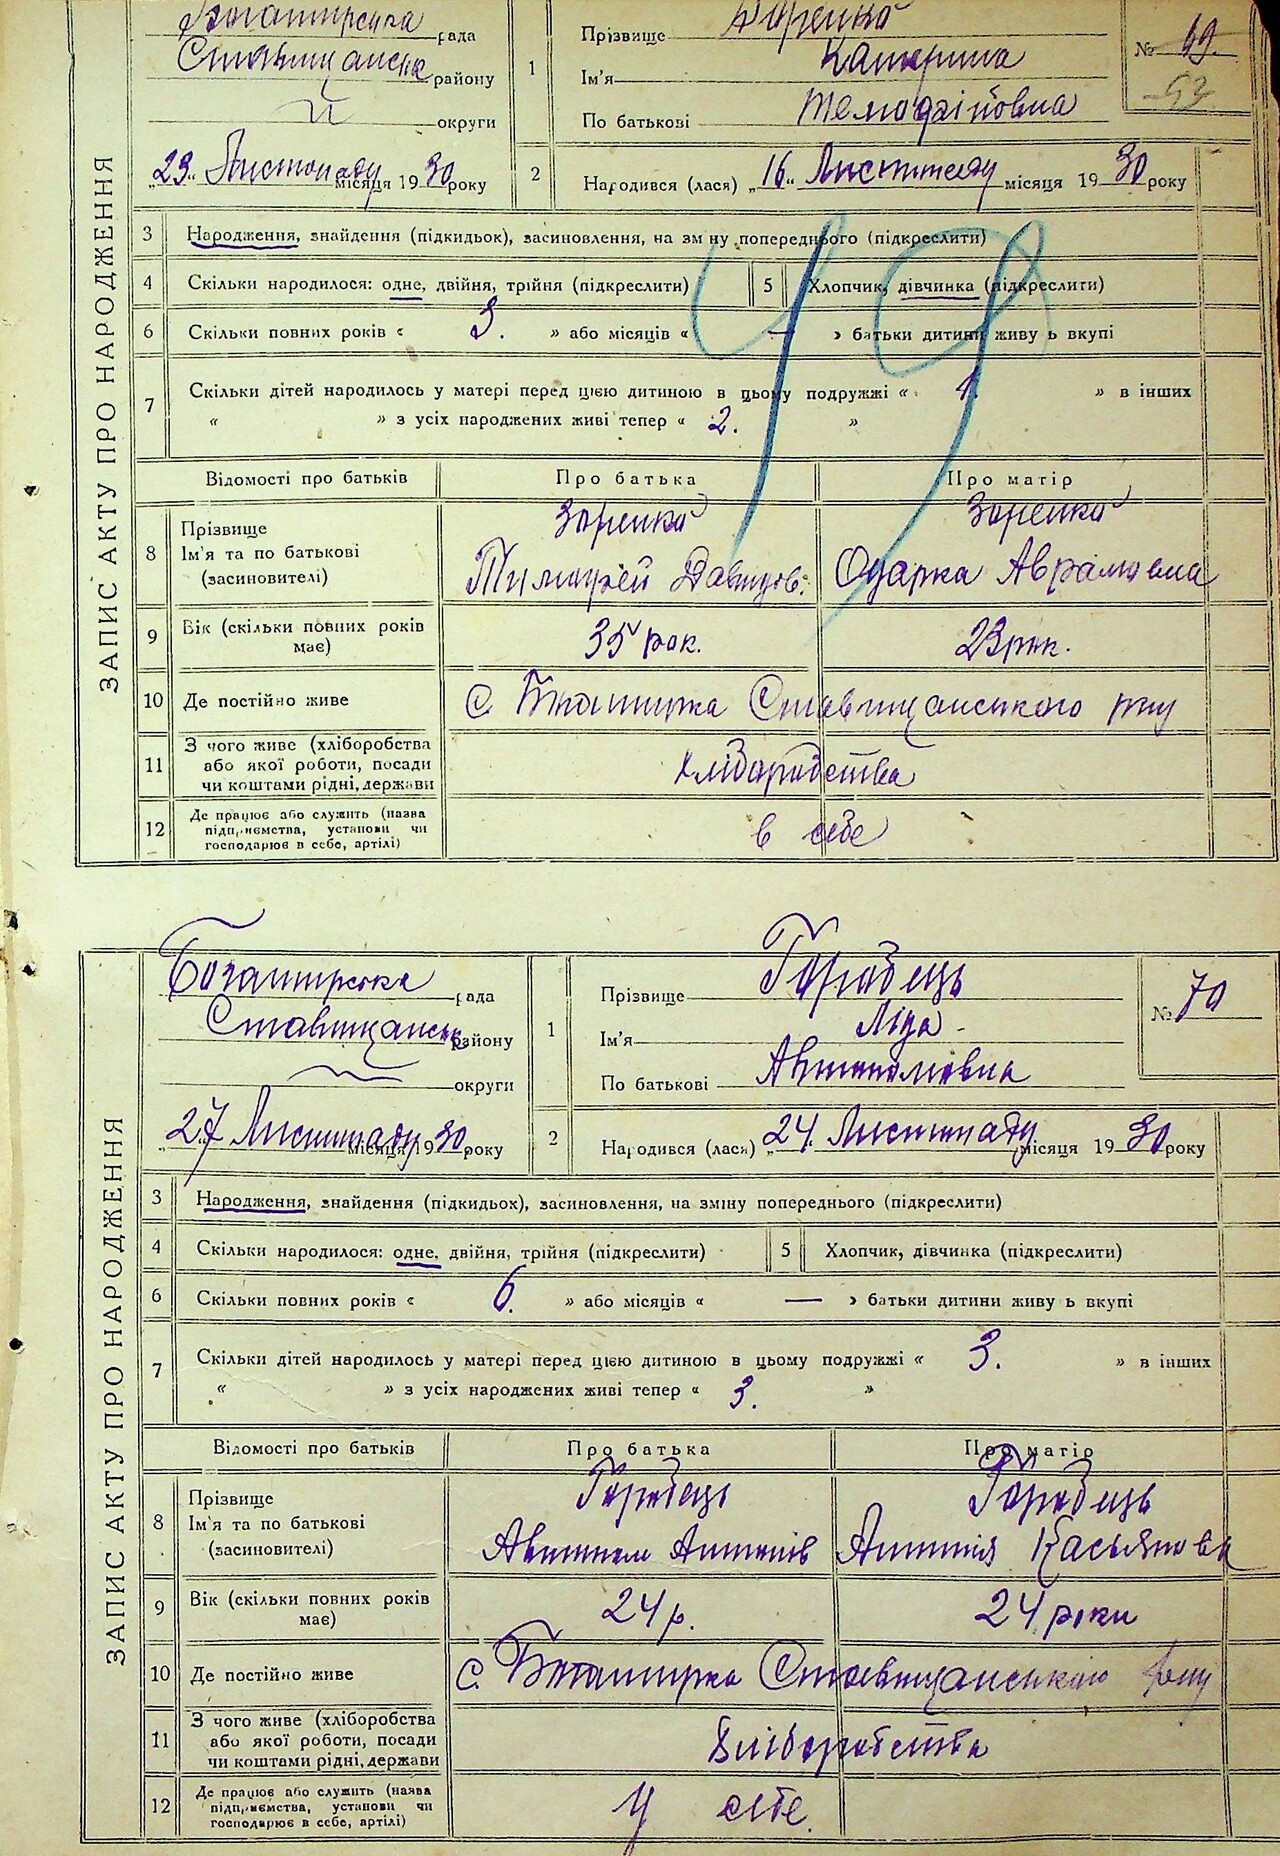 Богатирська рада
Ставищанськ району
округи
„23„ Листопаду місяця 1930 року
1
Прізвище Зоренко
Ім'я Катерина
По батькові
№ 69.
53
2
Народився (лася) „16„ Листопаду місяця 1930 року
ЗАПИС АКТУ ПРО НАРОДЖЕННЯ
3 Народження, знайдення (підкидьок), засиновлення, на зміну попереднього (підкреслити)
4 Скільки народилося: одне, двійня, трійня (підкреслити) 5 Хлопчик, дівчинка (підкреслити)
6 Скільки повних років « 3. » або місяців « — » батьки дитини живуть вкупі
7 Скільки дітей народилось у матері перед цією дитиною в цьому подружжі « 1. » в інших
« » з усіх народжених живі тепер « 2. »
19
Відомості про батьків Про батька Про матір
8 Прізвище Зоренко Зоренко
Ім'я та по батькові Тимофтей Давидов. Одарка Аврамовна
(засиновителі)
9 Вік (скільки повних років має) 35 рок. 23 рок.
10 Де постійно живе с. Богатирка Ставищанського р-ну
11 З чого живе (хліборобства або якої роботи, посади чи коштами рідні, держави хліборобства
12 Де працює або служить (назва підприємства, установи чи господарює в себе, артілі) в себе
Богатирська рада
Ставищанськ району
округи
„27„ Листопаду місяця 1930 року
1
Прізвище Горобець
Ім'я Ліда
По батькові Автономовна
№ 70
2
Народився (лася) „24. Листопаду місяця 1930 року
ЗАПИС АКТУ ПРО НАРОДЖЕННЯ
3 Народження, знайдення (підкидьох), засиновлення, на зміну попереднього (підкреслити)
4 Скільки народилося: одне, двійня, трійня (підкреслити) 5 Хлопчик, дівчинка (підкреслити)
6 Скільки повних років « 6. » або місяців « — » батьки дитини живуть вкупі
7 Скільки дітей народилось у матері перед цією дитиною в цьому подружжі « 3. » в інших
« » з усіх народжених живі тепер « 3. »
Відомості про батьків Про батька Про матір
8 Прізвище Горобець Горобець
Ім'я та по батькові Автоном Антонів Антонія Касьянова
(засиновителі)
9 Вік (скільки повних років має) 24 р. 24 роки
10 Де постійно живе с. Богатирка Ставищанською р-ну
11 З чого живе (хліборобства або якої роботи, посади чи коштами рідні, держави Хліборобства
12 Де працює або служить (назва підприємства, установи чи господарює в себе, артілі) У себе.